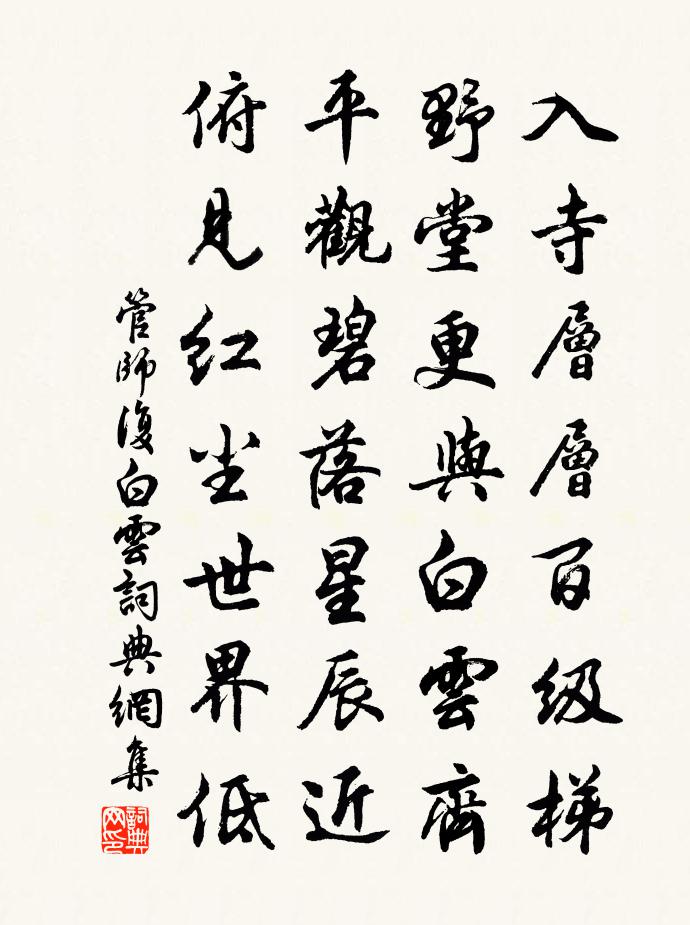 入寺層層百级梯
野堂更與白雲齊
平觀碧落星辰近
俯見红尘世界低
管師復白雲詞典網集
詞典网印